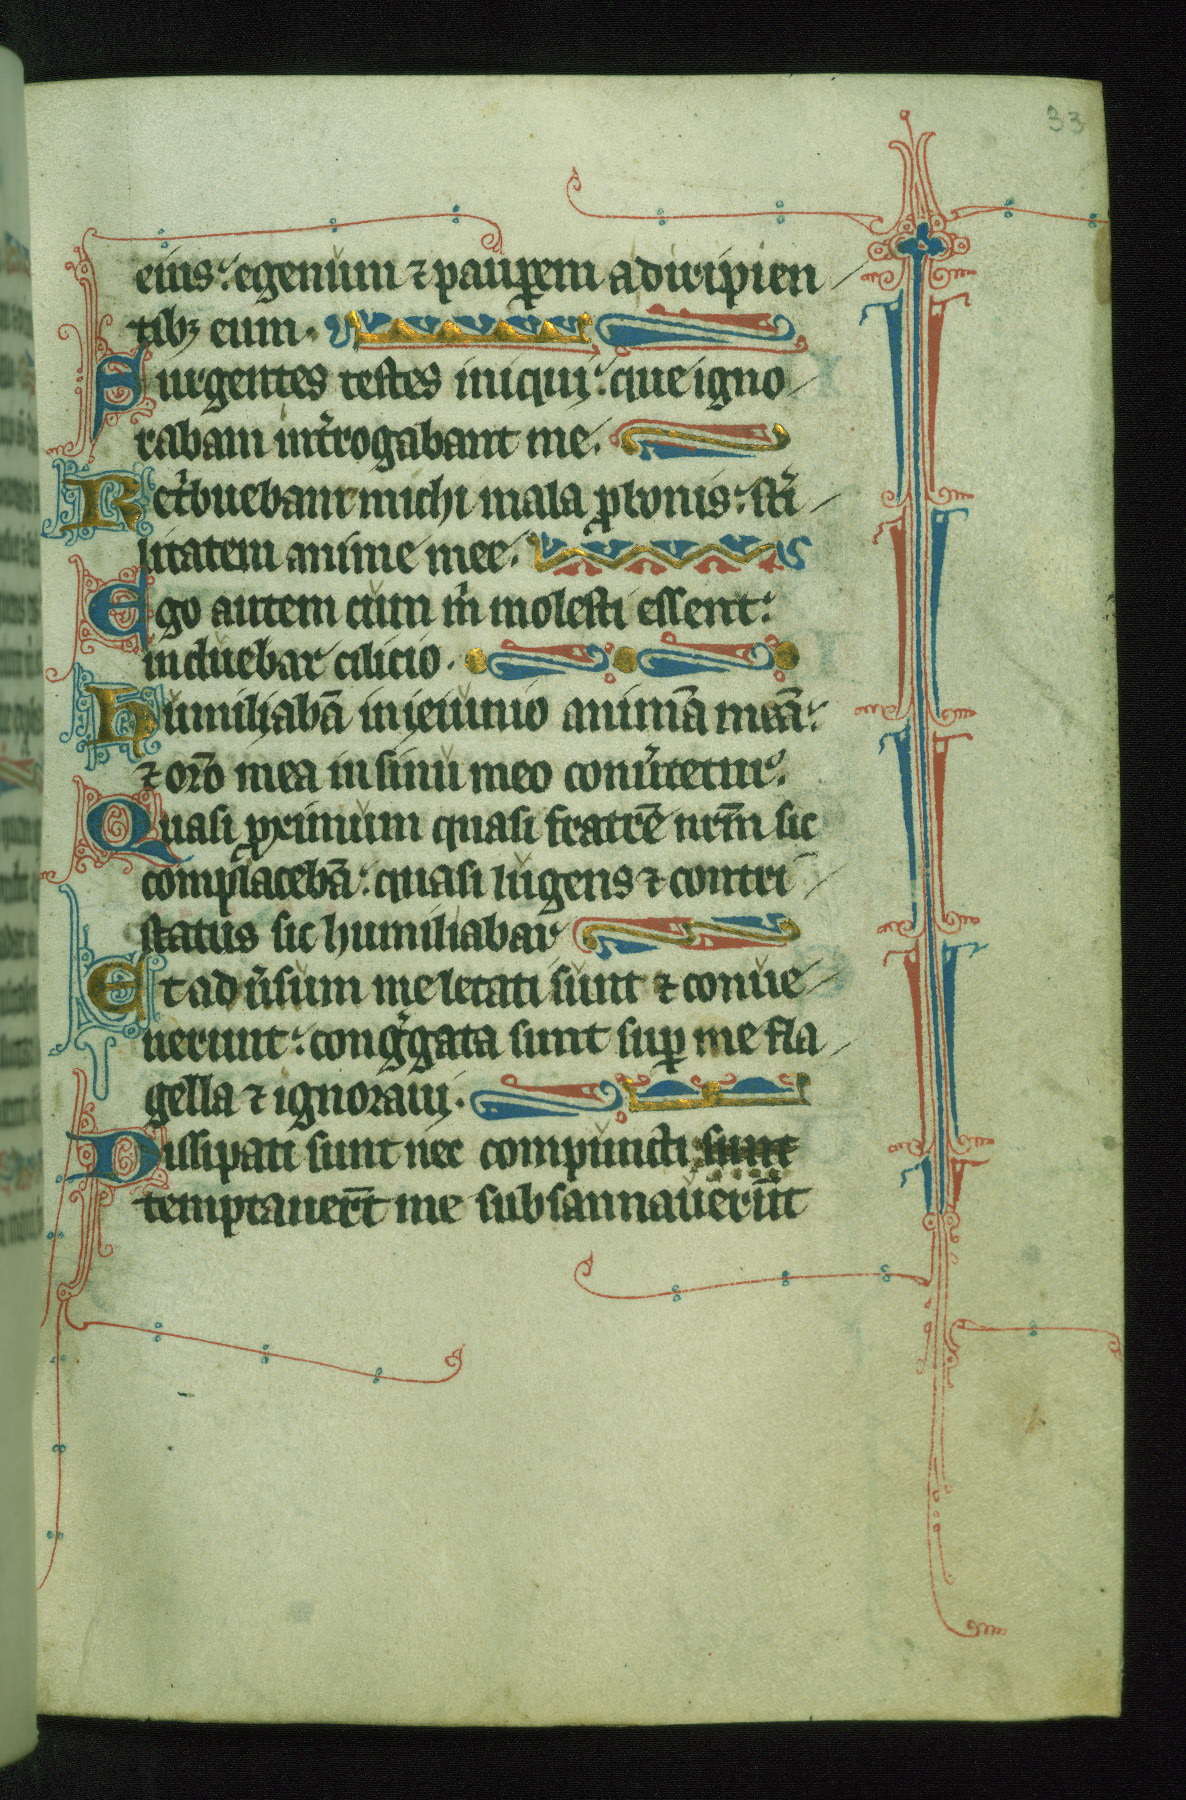 33
eius: egenum ⁊ paup̲em a diripien
tibꝫ eum.
Surgentes testes iniqui: que igno
rabam int̾rogabant me.
Ret̾buebant michi mala p̲ bonis: st̾i
litatem anime mee.
Ego autem cum m̾ molesti essent:
induebar cilicio.
Humiliabā in ieiunio animā meā:
⁊ or̄o mea in sinu meo conu̾tetur.
Quasi ꝓximum quasi fratrē nr̄m sic
complacebā: quasi lugens ⁊ contri
status sic humiliabar
Et adu̾sum me letati sunt ⁊ conue
nerunt: cong̾gata sunt suꝑ me fla
gella ⁊ ignoraui.
Dissipati sunt nec compuncti sunt
temptauer̄t me subsannauerūt